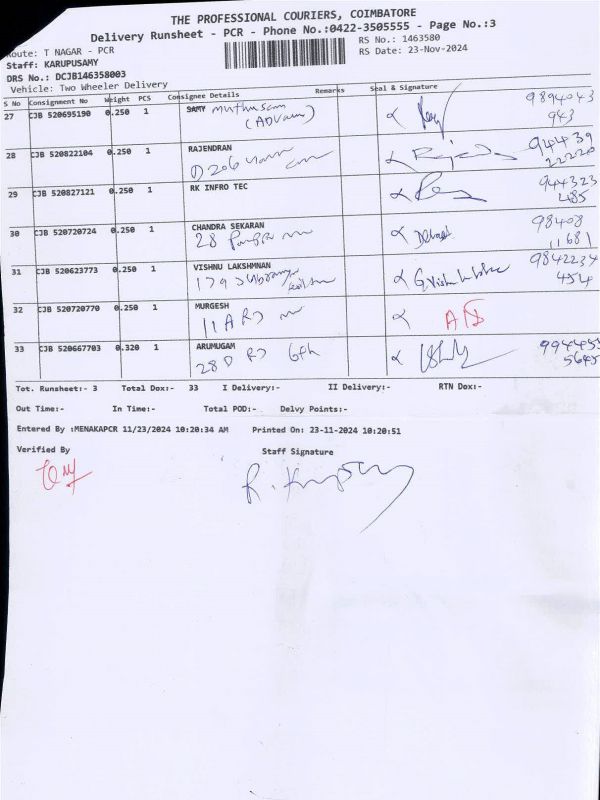 THE PROFESSIONAL COURIERS, COIMBATORE
Delivery Runsheet - PCR - Phone No.:0422-3505555 - Page No.:3
Route: T NAGAR - PCR
RS No.: 1463580
Staff: KARUPUSAMY
RS Date: 23-Nov-2024
DRS No.: DCJB146358003
Vehicle: Two Wheeler Delivery
S No Consignment No Weight PCS Consignee Details Remarks Seal & Signature
27 CJB 520695190 0.250 1 SAMY muthusam 9894043
943
28 CJB 520822104 0.250 1 RAJENDRAN 94439
D 206 22220
29 CJB 520827121 0.250 1 RK INFRO TEC 944323
485
30 CJB 520720724 0.250 1 CHANDRA SEKARAN 98408
28 11681
31 CJB 520623773 0.250 1 VISHNU LAKSHMNAN 9842234
179 454
32 CJB 520720770 0.250 1 MURGESH
11 A
33 CJB 520667703 0.320 1 ARUMUGAM 994455
28 D 6th 5645
Tot. Runsheet:- 3 Total Dox:- 33 I Delivery:- II Delivery:- RTN Dox:-
Out Time:- In Time:- Total POD:- Delvy Points:-
Entered By :MENAKAPCR 11/23/2024 10:20:34 AM Printed On: 23-11-2024 10:20:51
Verified By Staff Signature